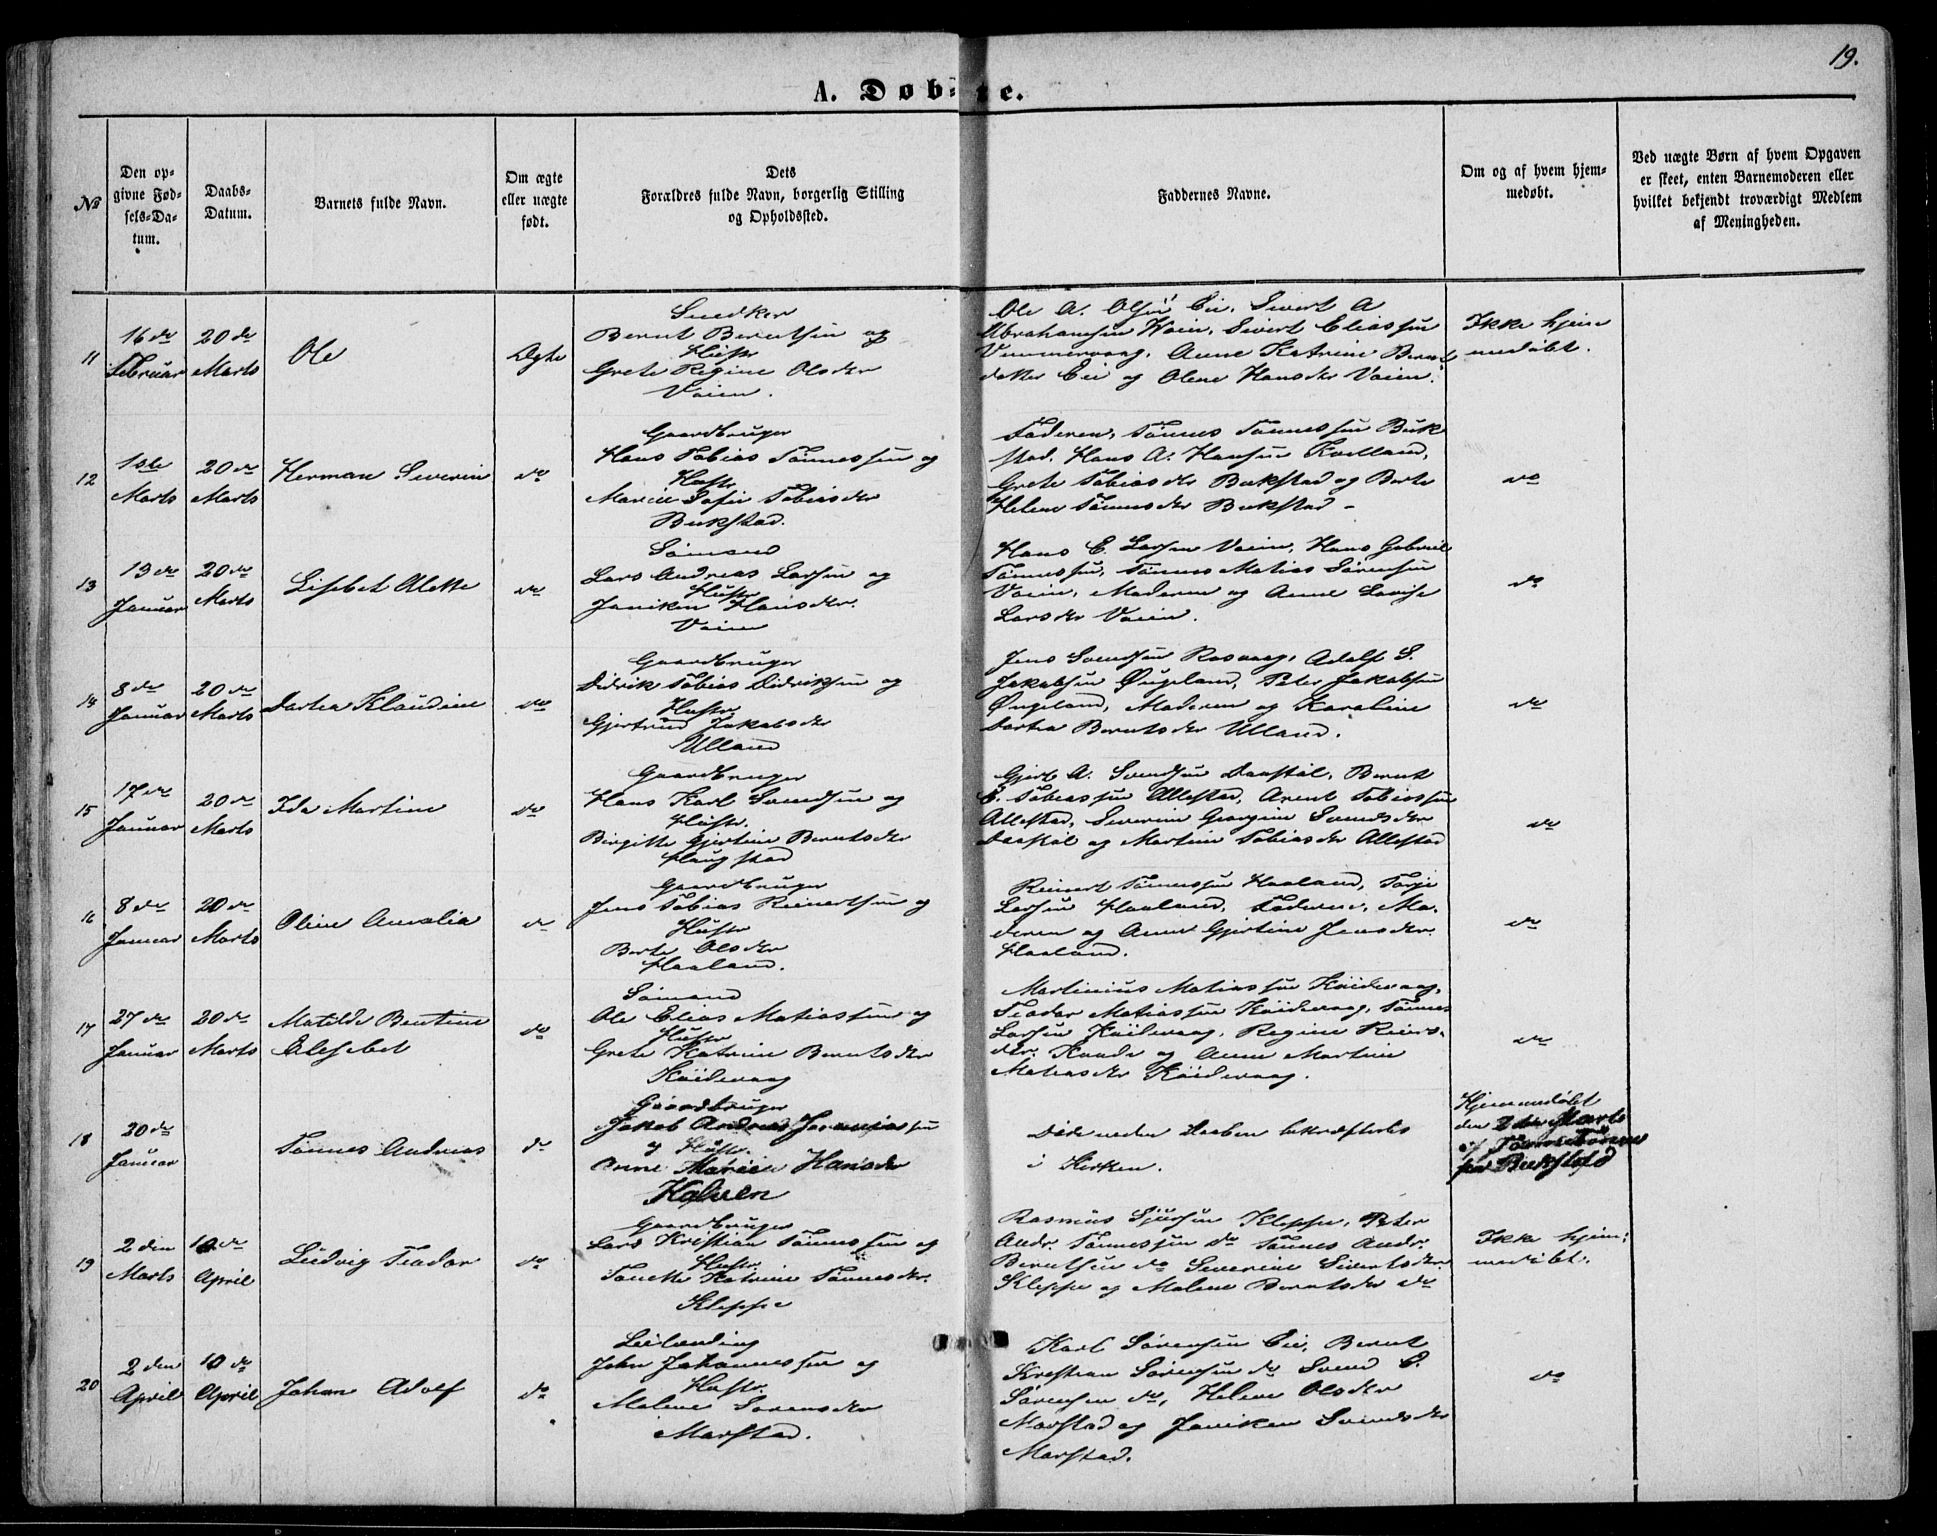 19.
A. Døbte.
No
Den op-
givne Fød-
sels-Da-
tum.
Daabs-
Datum.
Barnets fulde Navn.
Om ægte
eller uægte
født.
Dets
Forældres fulde Navn, borgerlig Stilling
og Opholdssted.
Faddernes Navne.
Om og af hvem hjem-
medøbt.
Ved uægte Børn af hvem Opgaven
er skeet, enten Barnemoderen eller
hvilket bekjendt troværdigt Medlem
af Meningheden.
11
16de
Februar
20de
Marts
Ole
Ægte
Snedker
Bernt Berntsen og
Hustr
Grete Regine Olsdtr
Vaien.
Ole A. Olsen Eie, Sivert A
Abrahamsen Vaien, Sivert Eliassen
Anne Katrine Bernt
datter Eie og Olene Hansdtr Vaien.
Ikke hjem
medøbt.
12
1ste
Marts
20de
Marts
Herman Severin
do
Gaardbruger
Hans Tobias Tønnessen og
Hustr
Maren Sofie Tobiasdtr
Bukstad.
Faderen, Tønnes Tønnessen Buk
stad, Hans A. Hansen
Grete Tobiasdtr Bukstad og Berte
Helene Tønnesdtr Bukstad -
do
13
13de
Januar
20de
Marts
Lisebet Alette
do
Sømand
Lars Andreas Larsen og
Hustr
Janiken Hansdtr.
Vaien
Hans E. Larsen Vaien, Hans Gabriel
Tønnessen, Tønnes Matias Sørensen
Vaien, Moderen og Anne Lovise
Larsdtr Vaien.
do
14
8de
Januar
20de
Marts
Dortea Klaudine
do
Gaardbruger
Didrik Tobias Didriksen og
Hustr
Gjertrud Jakobsdtr
Ulland
Jens Svendsen Rosvaag, Adolf S.
Jakobsen Øugeland, Peter Jakobsen
Øugeland, Moderen og Karoline
Dortea Berntsdtr Ulland.
do
15
17de
Januar
20de
Marts
Ida Martine
do
Gaardbruger
Hans Karl Svendsen og
Hustr.
Birgitte Gjertine Berntsdtr
Haugstad
Gjert A. Svendsen Bernt
E. Tobiassen Allestad, Arent Tobiassen
Allestad, Severine Georgine Svendsdtr
og Martine Tobiasdtr Allestad
do
16
8de
Januar
20de
Marts
Oline Amalia
do
Gaardbruger
Jens Tobias Reinertsen og
Hustr
Berte Olsdtr
Haaland.
Reinert Tønnessen Haaland, Torje
Larsen Haaland, Faderen, Mo-
deren og Anne Gjertine Jensdtr.
Haaland.
do
17
27de
Januar
20de
Marts
Matilde Bentine
Elesebet
do
Sømand
Ole Elias Matiassen og
Hustr
Grete Katrine Berntsdtr
Køidevaag
Martinius Matiassen Køidevaag,
Teodor Matiassen Køidevaag, Tønnes
Larsen Køidevaag, Regine Reiers-
dtr. og Anne Martine
Matiasdtr Køidevaag.
do
18
20de
Januar
Tønnes Andreas
do
Gaardbruger
Jakob Andreas Jeremiassen
og Hustr.
Anne Marie Hansdtr
Døde inden Daaben bekræftedes
i Kirken.
Hjemmedøbt
den 2den Marts
af
Bukstad
19
2den
Marts
10de
April
Ludvig Teodor
do
Gaardbruger
Lars Kristian Tønnessen og
Hustr.
Tonette Katrine Tønnesdtr.
Kleppe
Rasmus Sjursen Kleppe, Peter
Andr. Tønnessen do Tønnes Andr.
Berntsen do Severine Sivertsdtr.
Kleppe og Malene Berntsdtr do
Ikke hjem-
medøbt.
20
2den
April
10de
April
Johan Adolf
do
Leilænding
John Johannessen og
Hustr.
Malene Sørensdtr
Marstad.
Karl Sørensen Eie, Bernt
Kristian Sørensen do Svend O.
Sørensen do, Helene Olsdtr
Marstad og Janiken Svendsdtr
Marstad.
do